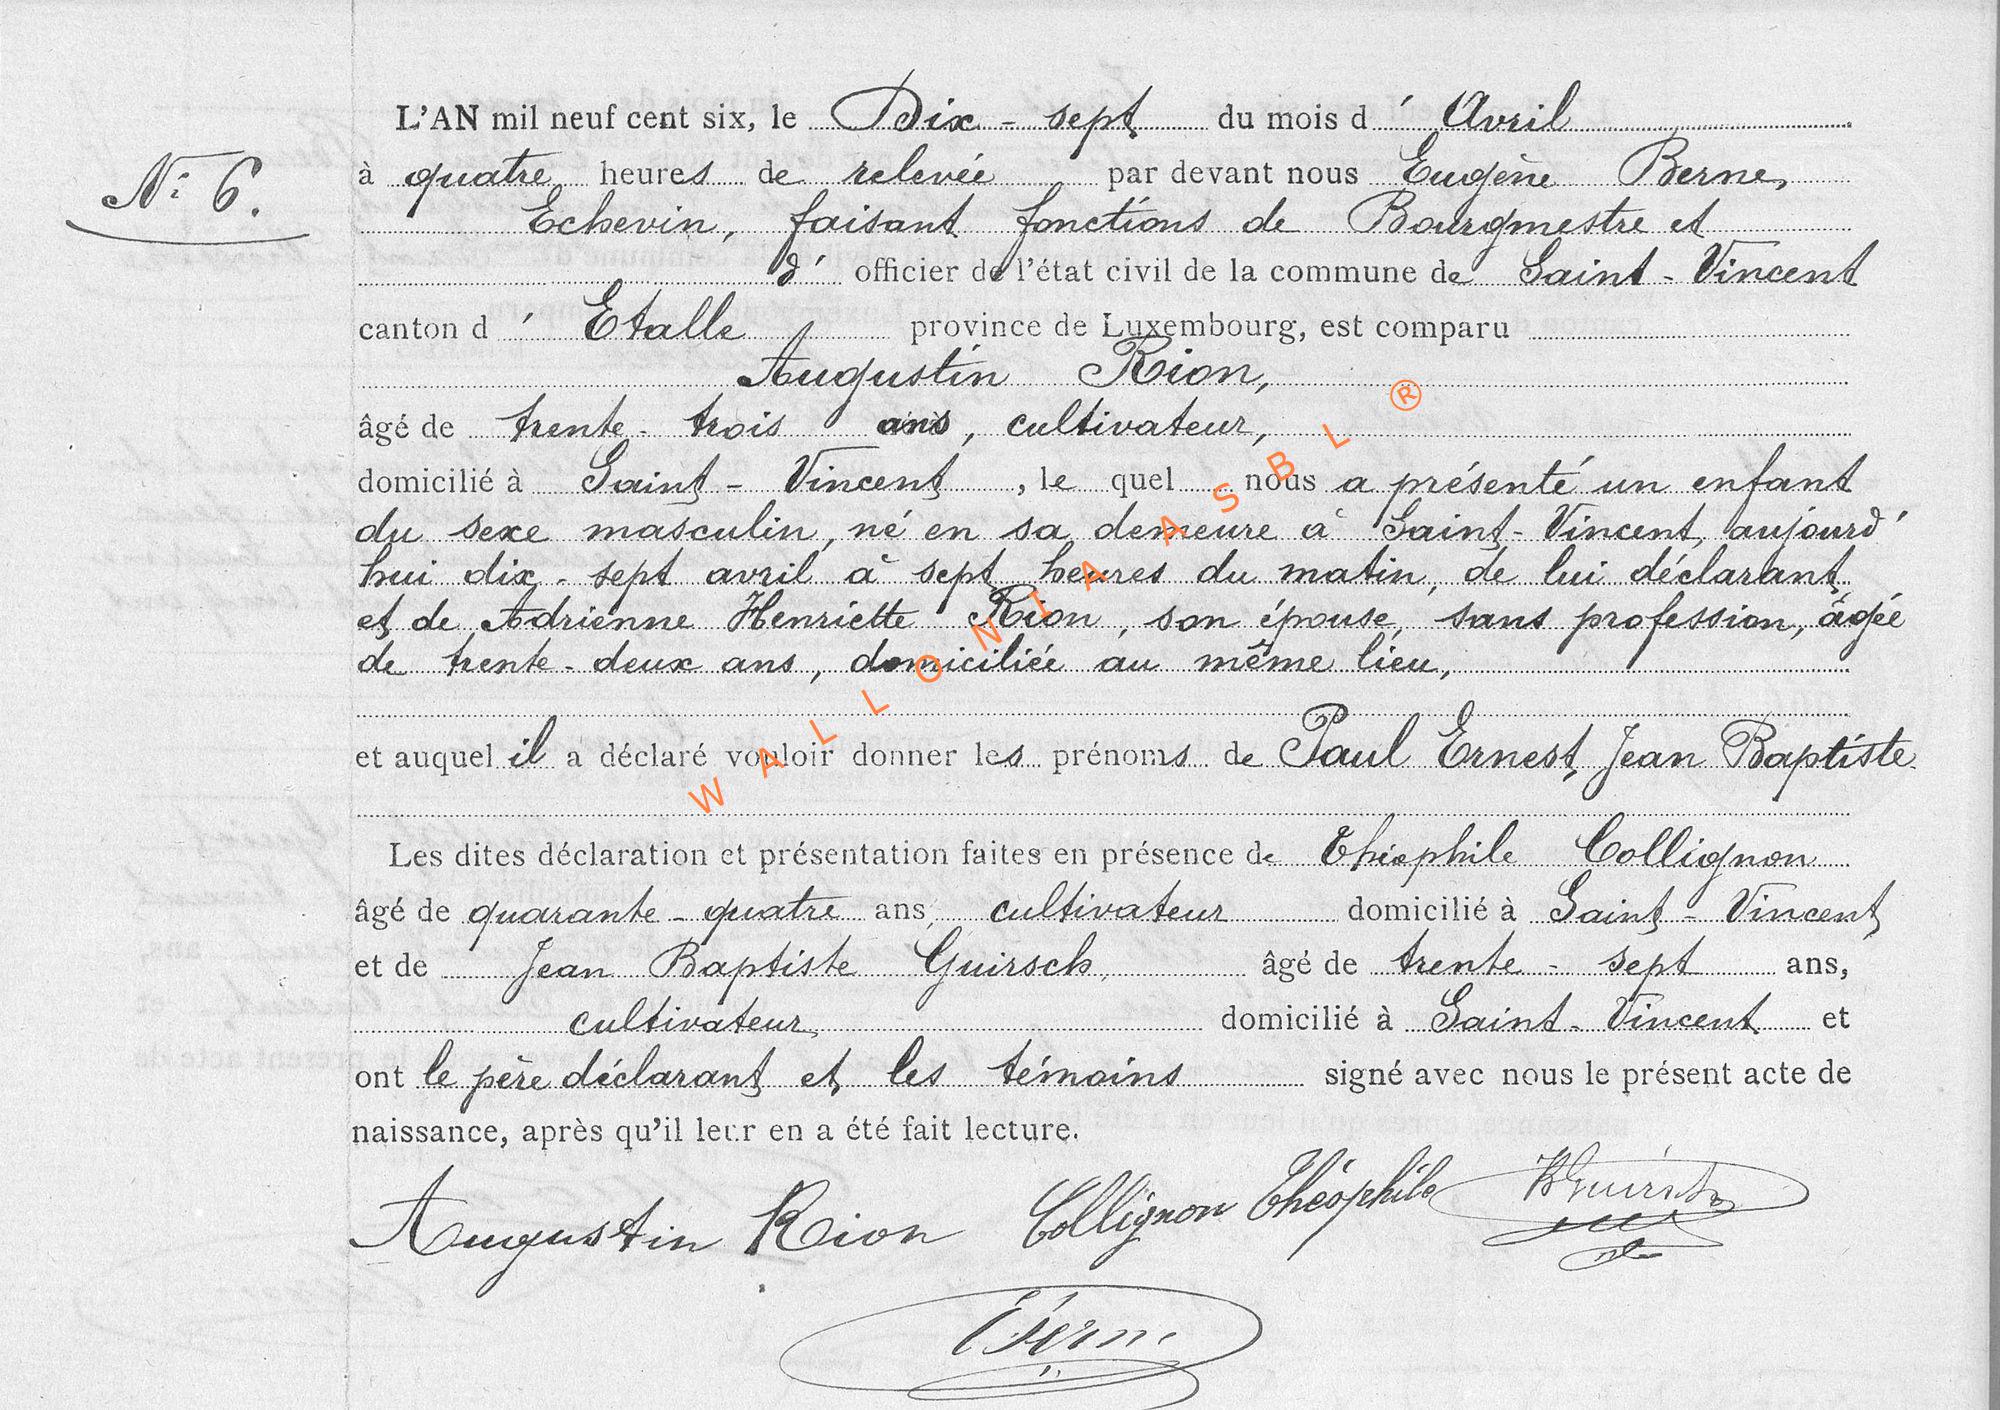 N° 6.
L'AN mil neuf cent six, le Dix-sept du mois d'Avril
à quatre heures de relevée par devant nous Eugène Berne,
Echevin, faisant fonctions de Bourgmestre et
d' officier de l'état civil de la commune de Saint-Vincent
canton d'Etalle province de Luxembourg, est comparu
Augustin Rion,
âgé de trente-trois ans, cultivateur,
domicilié à Saint-Vincent, le quel nous a présenté un enfant
du sexe masculin, né en sa demeure à Saint-Vincent, aujourd'
hui dix-sept avril à sept heures du matin, de lui déclarant
et de Adrienne Henriette Rion, son épouse, sans profession, âgée
de trente-deux ans, domiciliée au même lieu,
et auquel il a déclaré vouloir donner les prénoms de Paul Ernest, Jean Baptiste
Les dites déclaration et présentation faites en présence de Théophile Collignon
âgé de quarante-quatre ans, cultivateur domicilié à Saint-Vincent
et de Jean Baptiste Guirsch, âgé de trente-sept ans,
cultivateur, domicilié à Saint-Vincent et
ont le père déclarant et les témoins signé avec nous le présent acte de
naissance, après qu'il leur en a été fait lecture.
Augustin Rion Collignon Théophile
WALLONIA ASBL ®